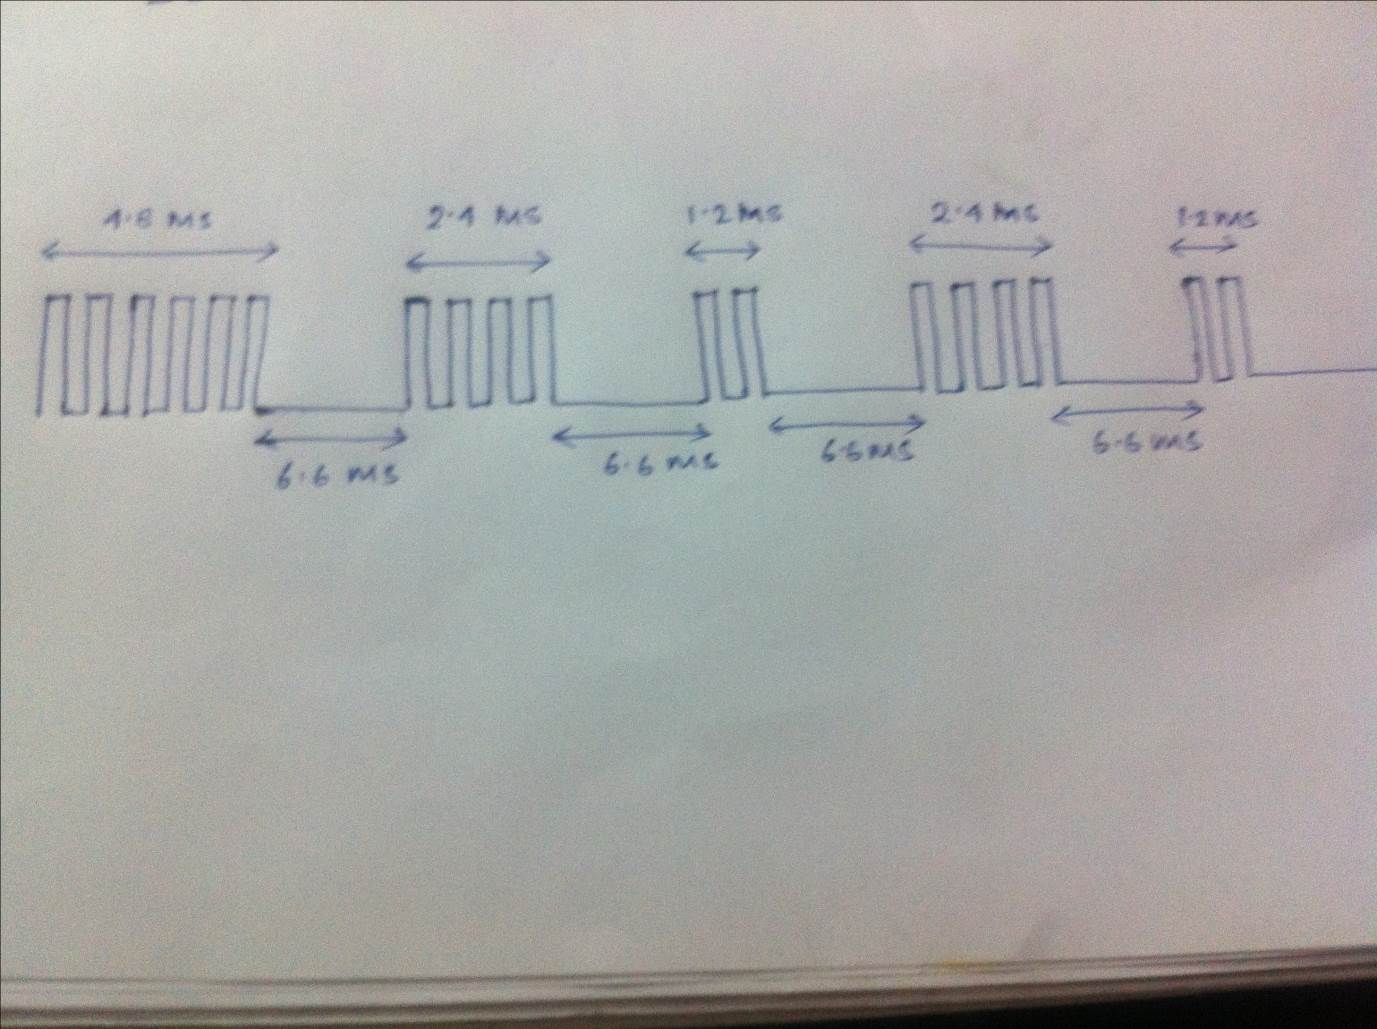 4.8 ms
2.4 ms
1.2 ms
2.4 ms
1.2 ms
6.6 ms
6.6 ms
6.6 ms
6.6 ms